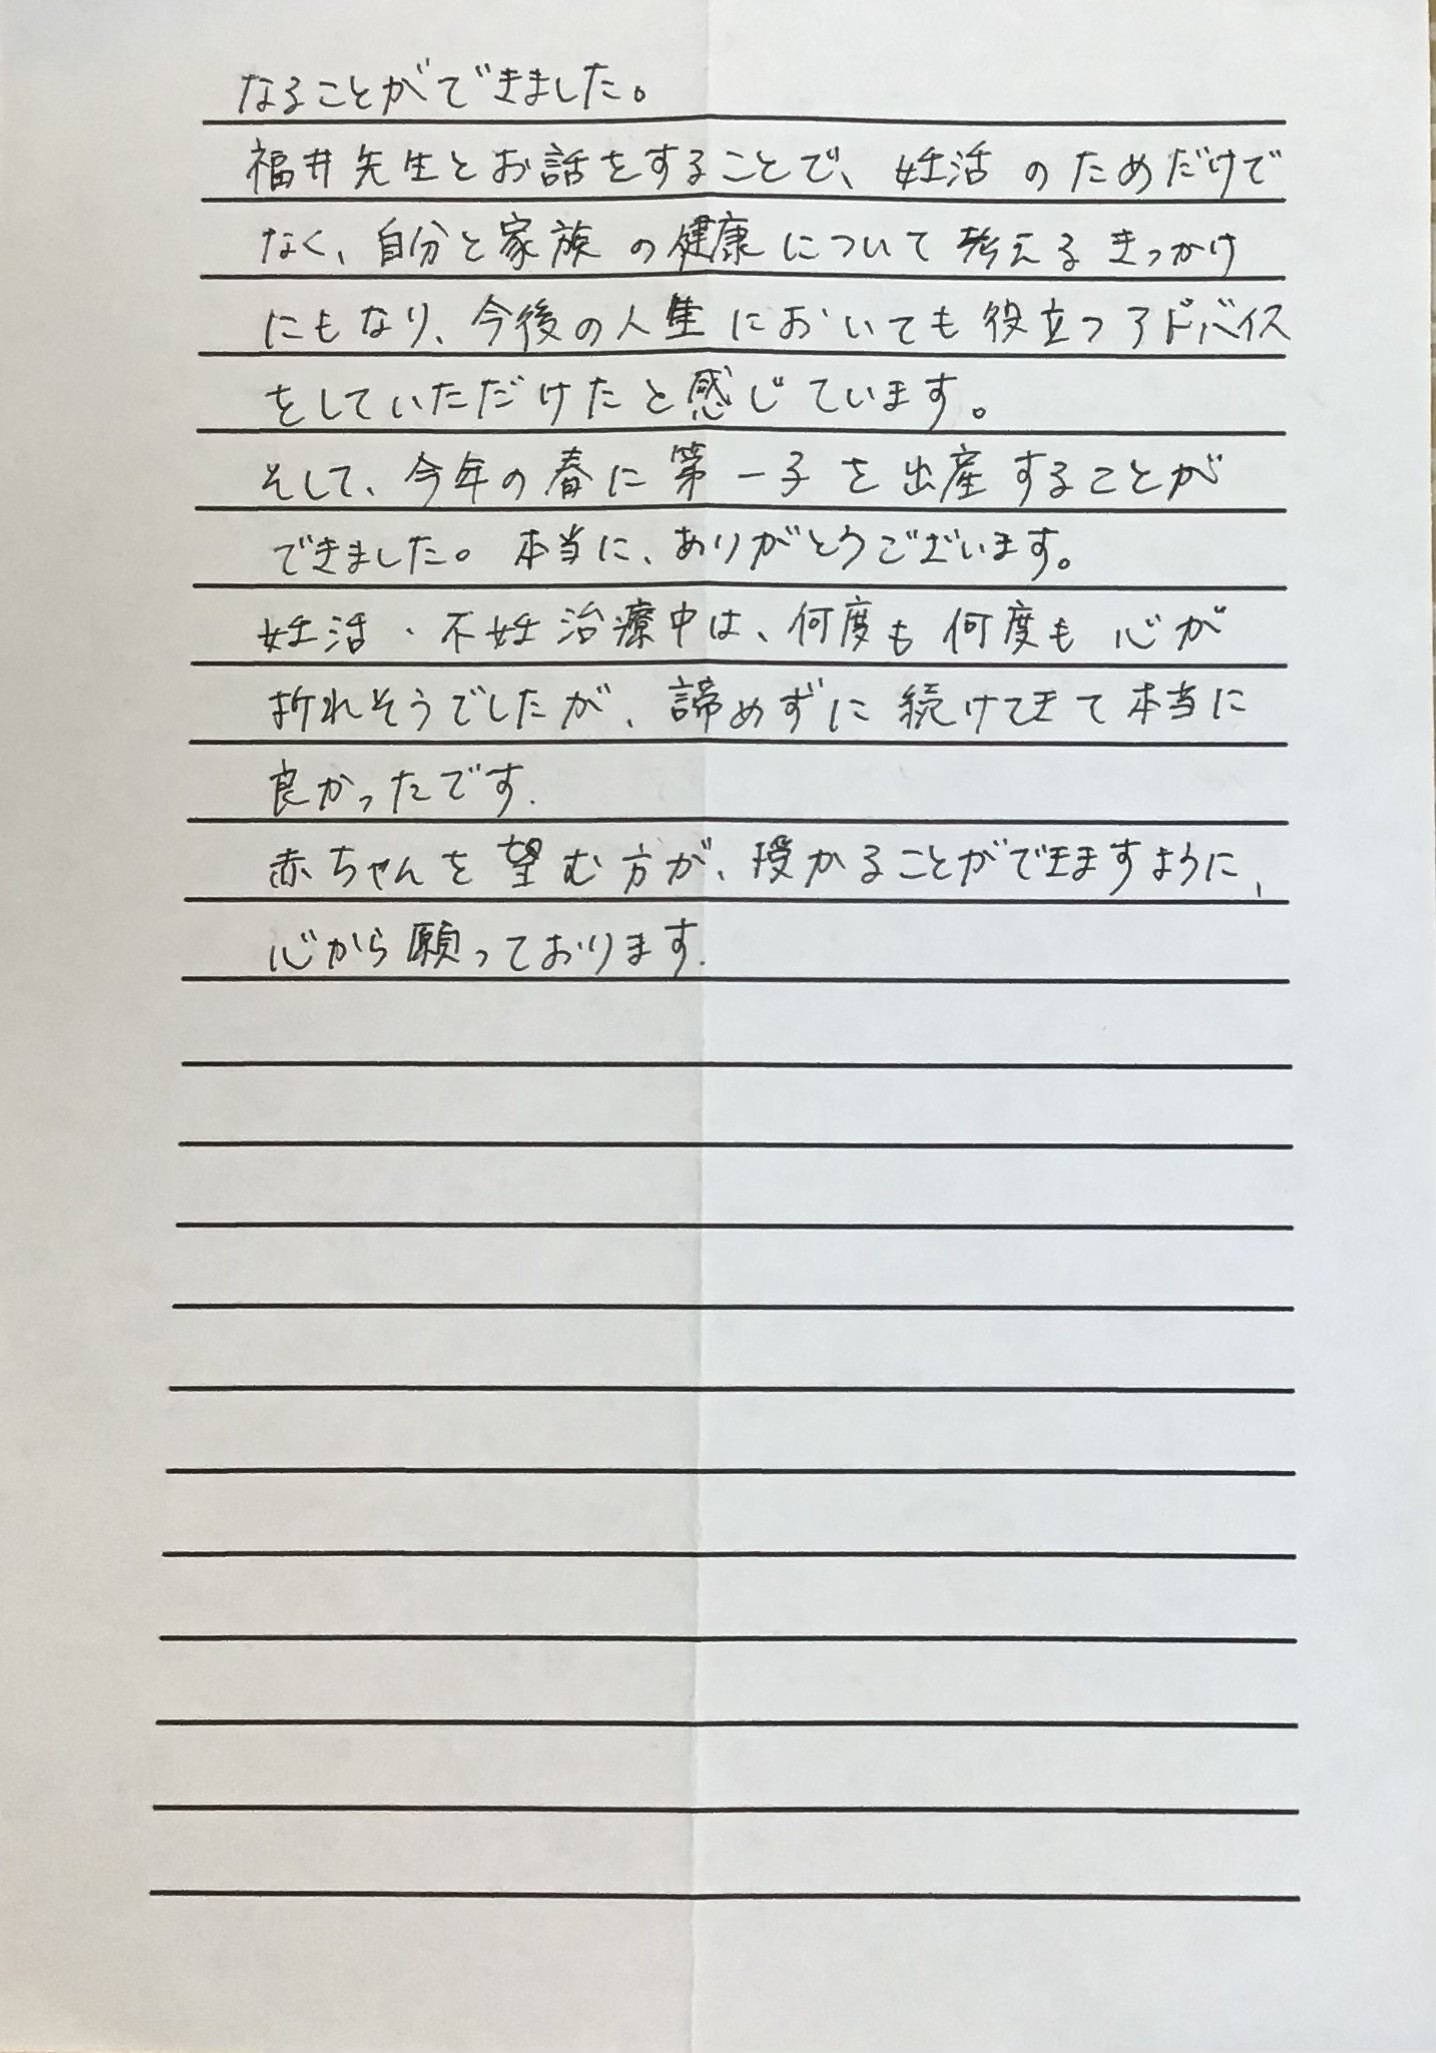 なることができました。
福井先生とお話をすることで、妊活のためだけで
なく、自分と家族の健康について考えるきっかけ
にもなり、今後の人生においても役立つアドバイス
をしていただけたと感じています。
そして、今年の春に第一子を出産することが
できました。本当に、ありがとうございます。
妊活・不妊治療中は、何度も何度も心が
折れそうでしたが、諦めずに続けてきて本当に
良かったです.
赤ちゃんを望む方が、授かることができますように、
心から願っております.